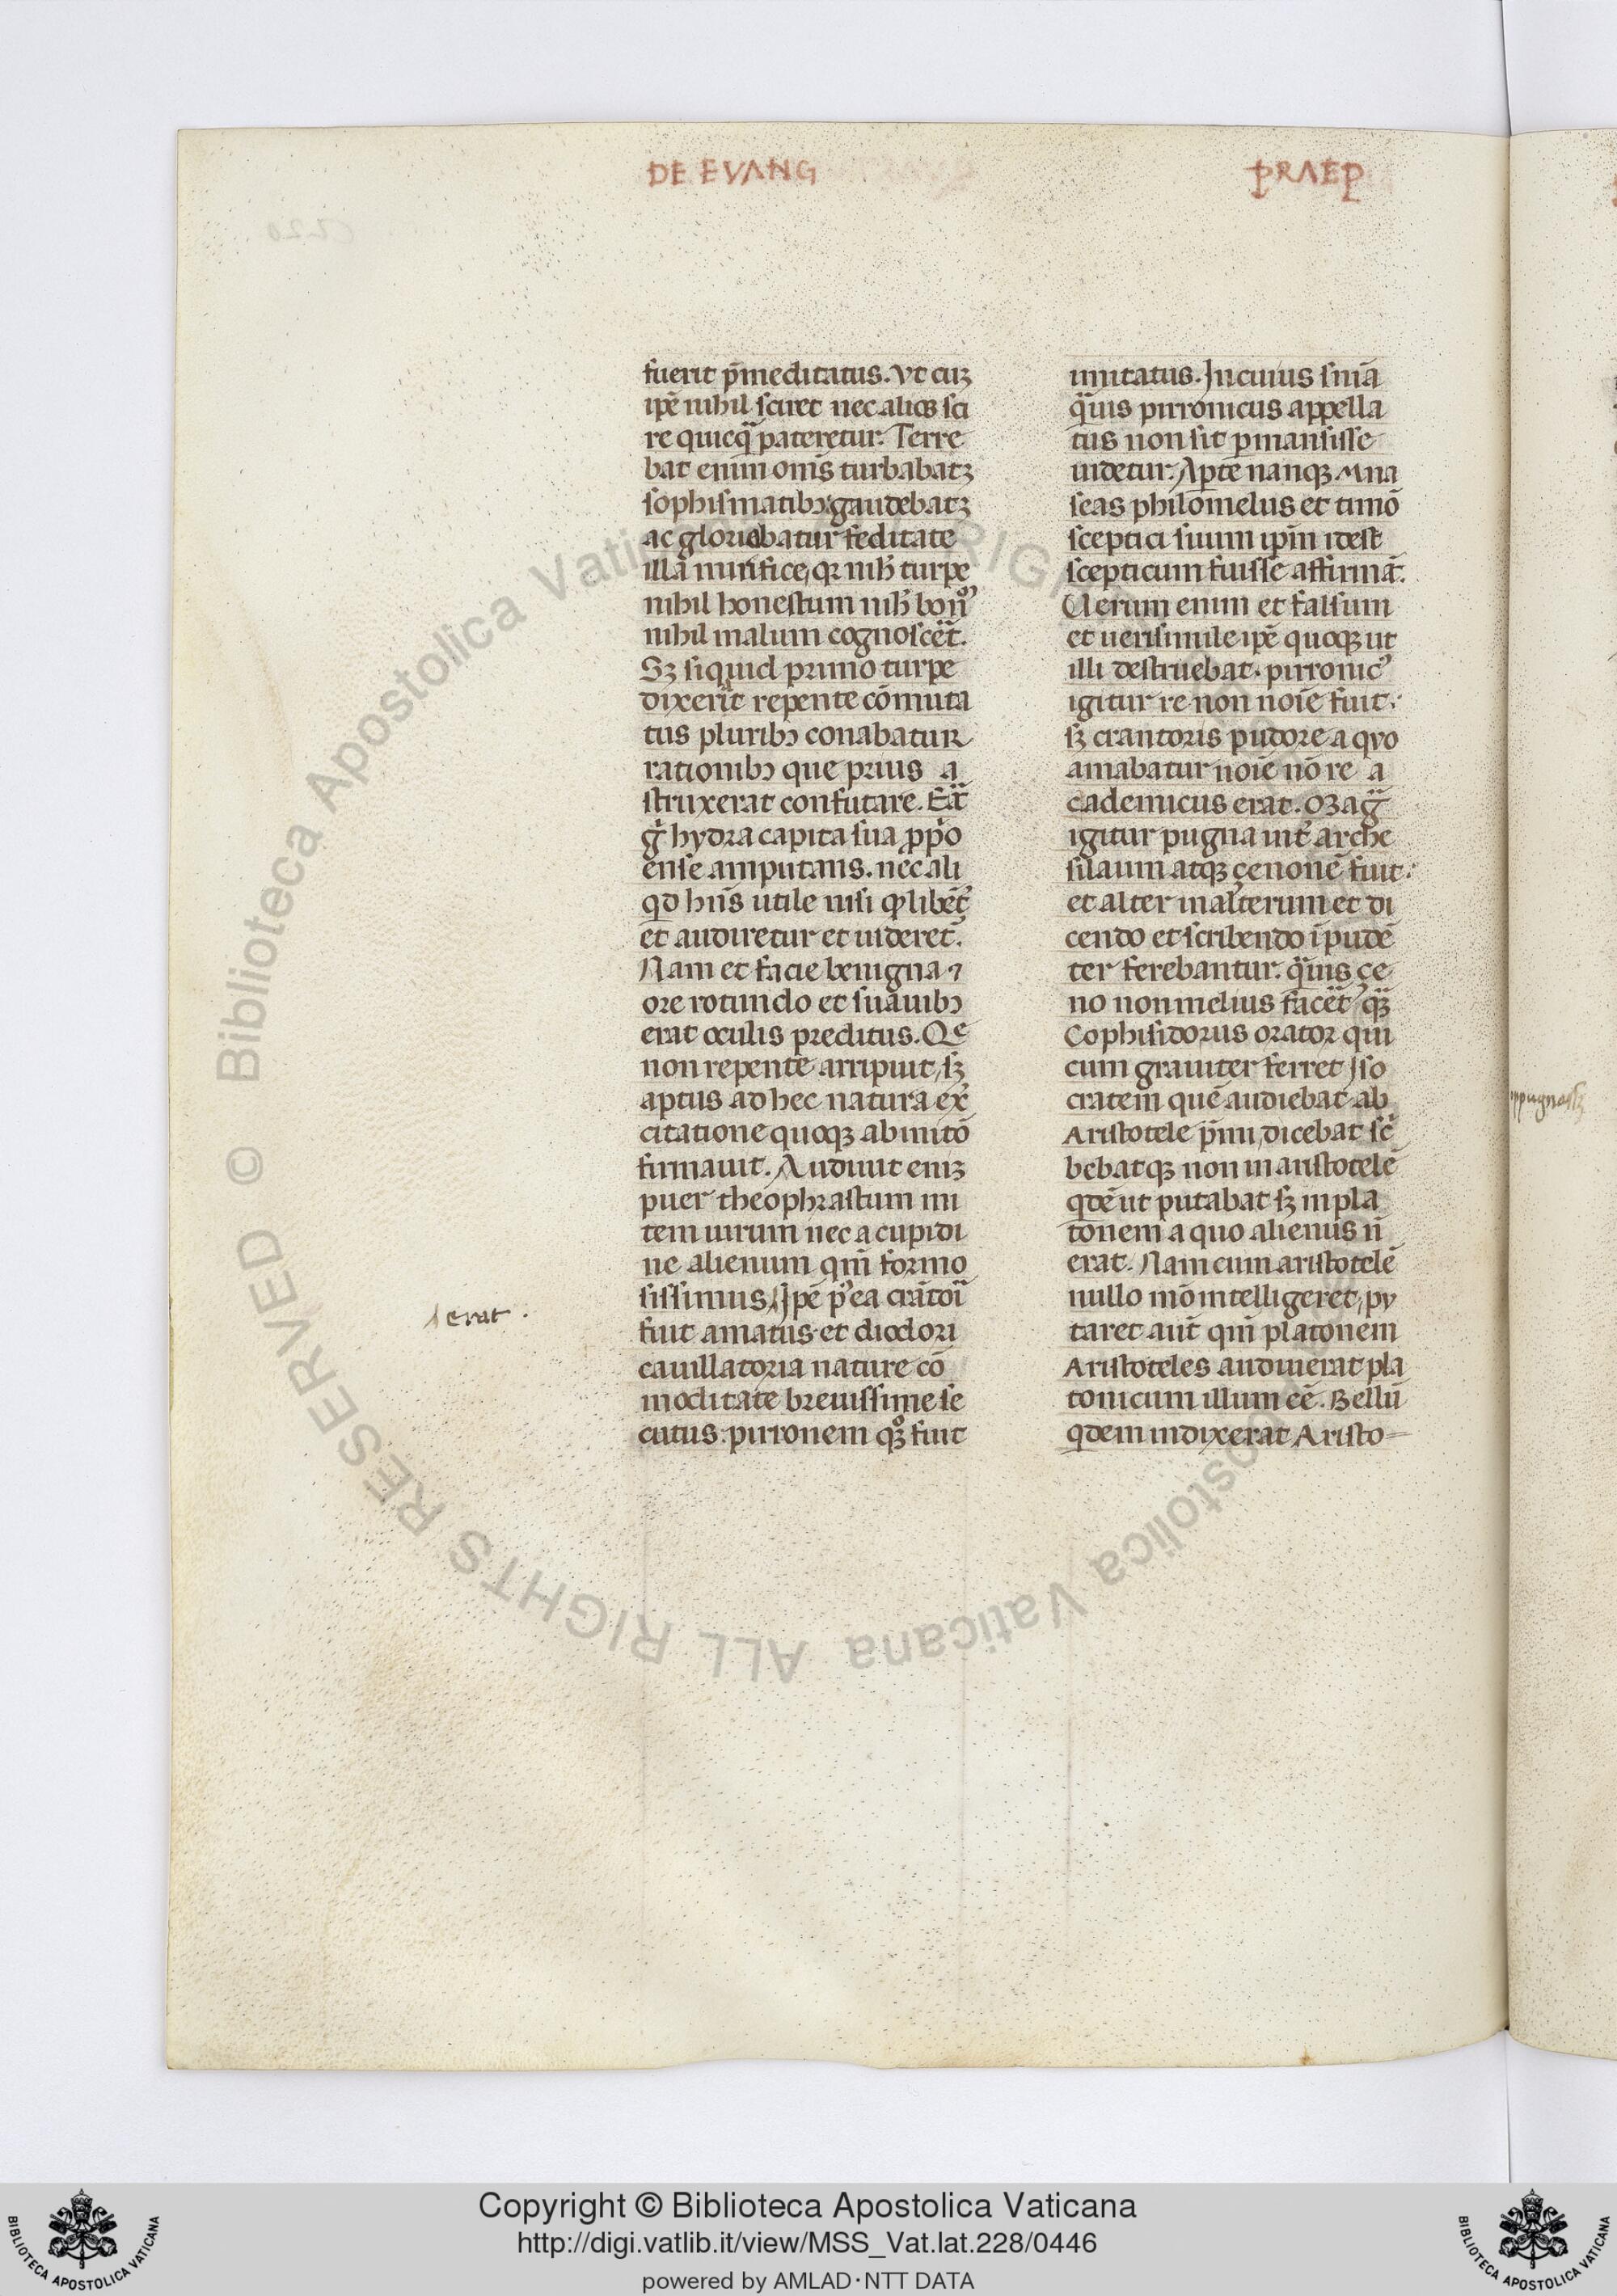 DE EVANG
PRAEP
fuerit p̄meditatus. Vt cuꝫ
ip̄e nihil sciret nec alios sci
re quicq̄ pateretur. Terre
bat enim om̄s turbabatꝫ
sophismatibꝫ gaudebatꝫ
ac gloriabatur feditate
illa mirifice, qꝛ nih̄ turpe
nihil honestum nih̄ bonū
nihil malum cognoscēt.
Sꝫ si quid primo turpe
dixerit repente cōmuta
tus pluribꝫ conabatur
rationibꝫ que prius a
struxerat confutare. Erat
g̊ hydra capita sua ꝓpo
ense amputans. nec ali
qd hn̄s utile nisi qꝫ libēt̉
et audiretur et uideret̉.
Nam et facie benigna ⁊
ore rotundo et suauibꝫ
erat oculis preditus. Qe
non repente arripuit, sꝫ
aptus ad hec natura ex̉
citatione quoqꝫ ab initō
firmauit. Audiuit eniꝫ
puer theophrastum mi
tem uirum nec a cupidi
ne alienum qm̄ formo
sissimus, Ip̄e p̉ea crātori
fuit amatus et diodori
cauillatoria nature cō
moditate breuissime se
cutus: pirronem qꝫ̊ fuit
erat .
imitatus. In cuius sn̄ia
q̄uis pirronicus appella
tus non sit ꝑmansisse
uidetur. Apte nanqꝫ Mna
seas philomelus et timō
sceptici suum ip̄m idest
scepticum fuisse affirmāt.
Uerum enim et falsum
et uerisimile ip̄e quoqꝫ ut
illi destruebat. pirronic̉
igitur re non noīe fuit:
sꝫ crantoris pudore a qvo
amabatur noīe nō re a
cademicus erat. Maḡ
igitur pugna int̉ arche
silaum atqꝫ çenonē fuit:
et alter in alterum et di
cendo et scribendo īpudē
ter ferebantur. q̄uis çe
no non melius facēt, qꝫ̄
Cophisidorus orator qui
cum grauiter ferret Iso
cratem quē audiebat ab
Aristotele p̄mi, dicebat sc̉
bebatqꝫ non in aristotelē
qdē ut putabat sꝫ in pla
tonem a quo alienus n̄
erat. Nam cum aristotelē
nullo mō intelligeret, pv
taret aut̄ qm̄ platonem
Aristoteles audiuerat pla
tonicum illum eē. Bellū
qdem indixerat Aristo=
Copyright © Biblioteca Apostolica Vaticana
http://digi.vatlib.it/view/MSS_Vat.lat.228/0446
powered by AMLAD·NTT DATA
BIBLIOTECA APOSTOLICA VATICANA
BIBLIOTECA APOSTOLICA VATICANA
© Biblioteca Apostolica Vaticana ALL RIGHTS RESERVED